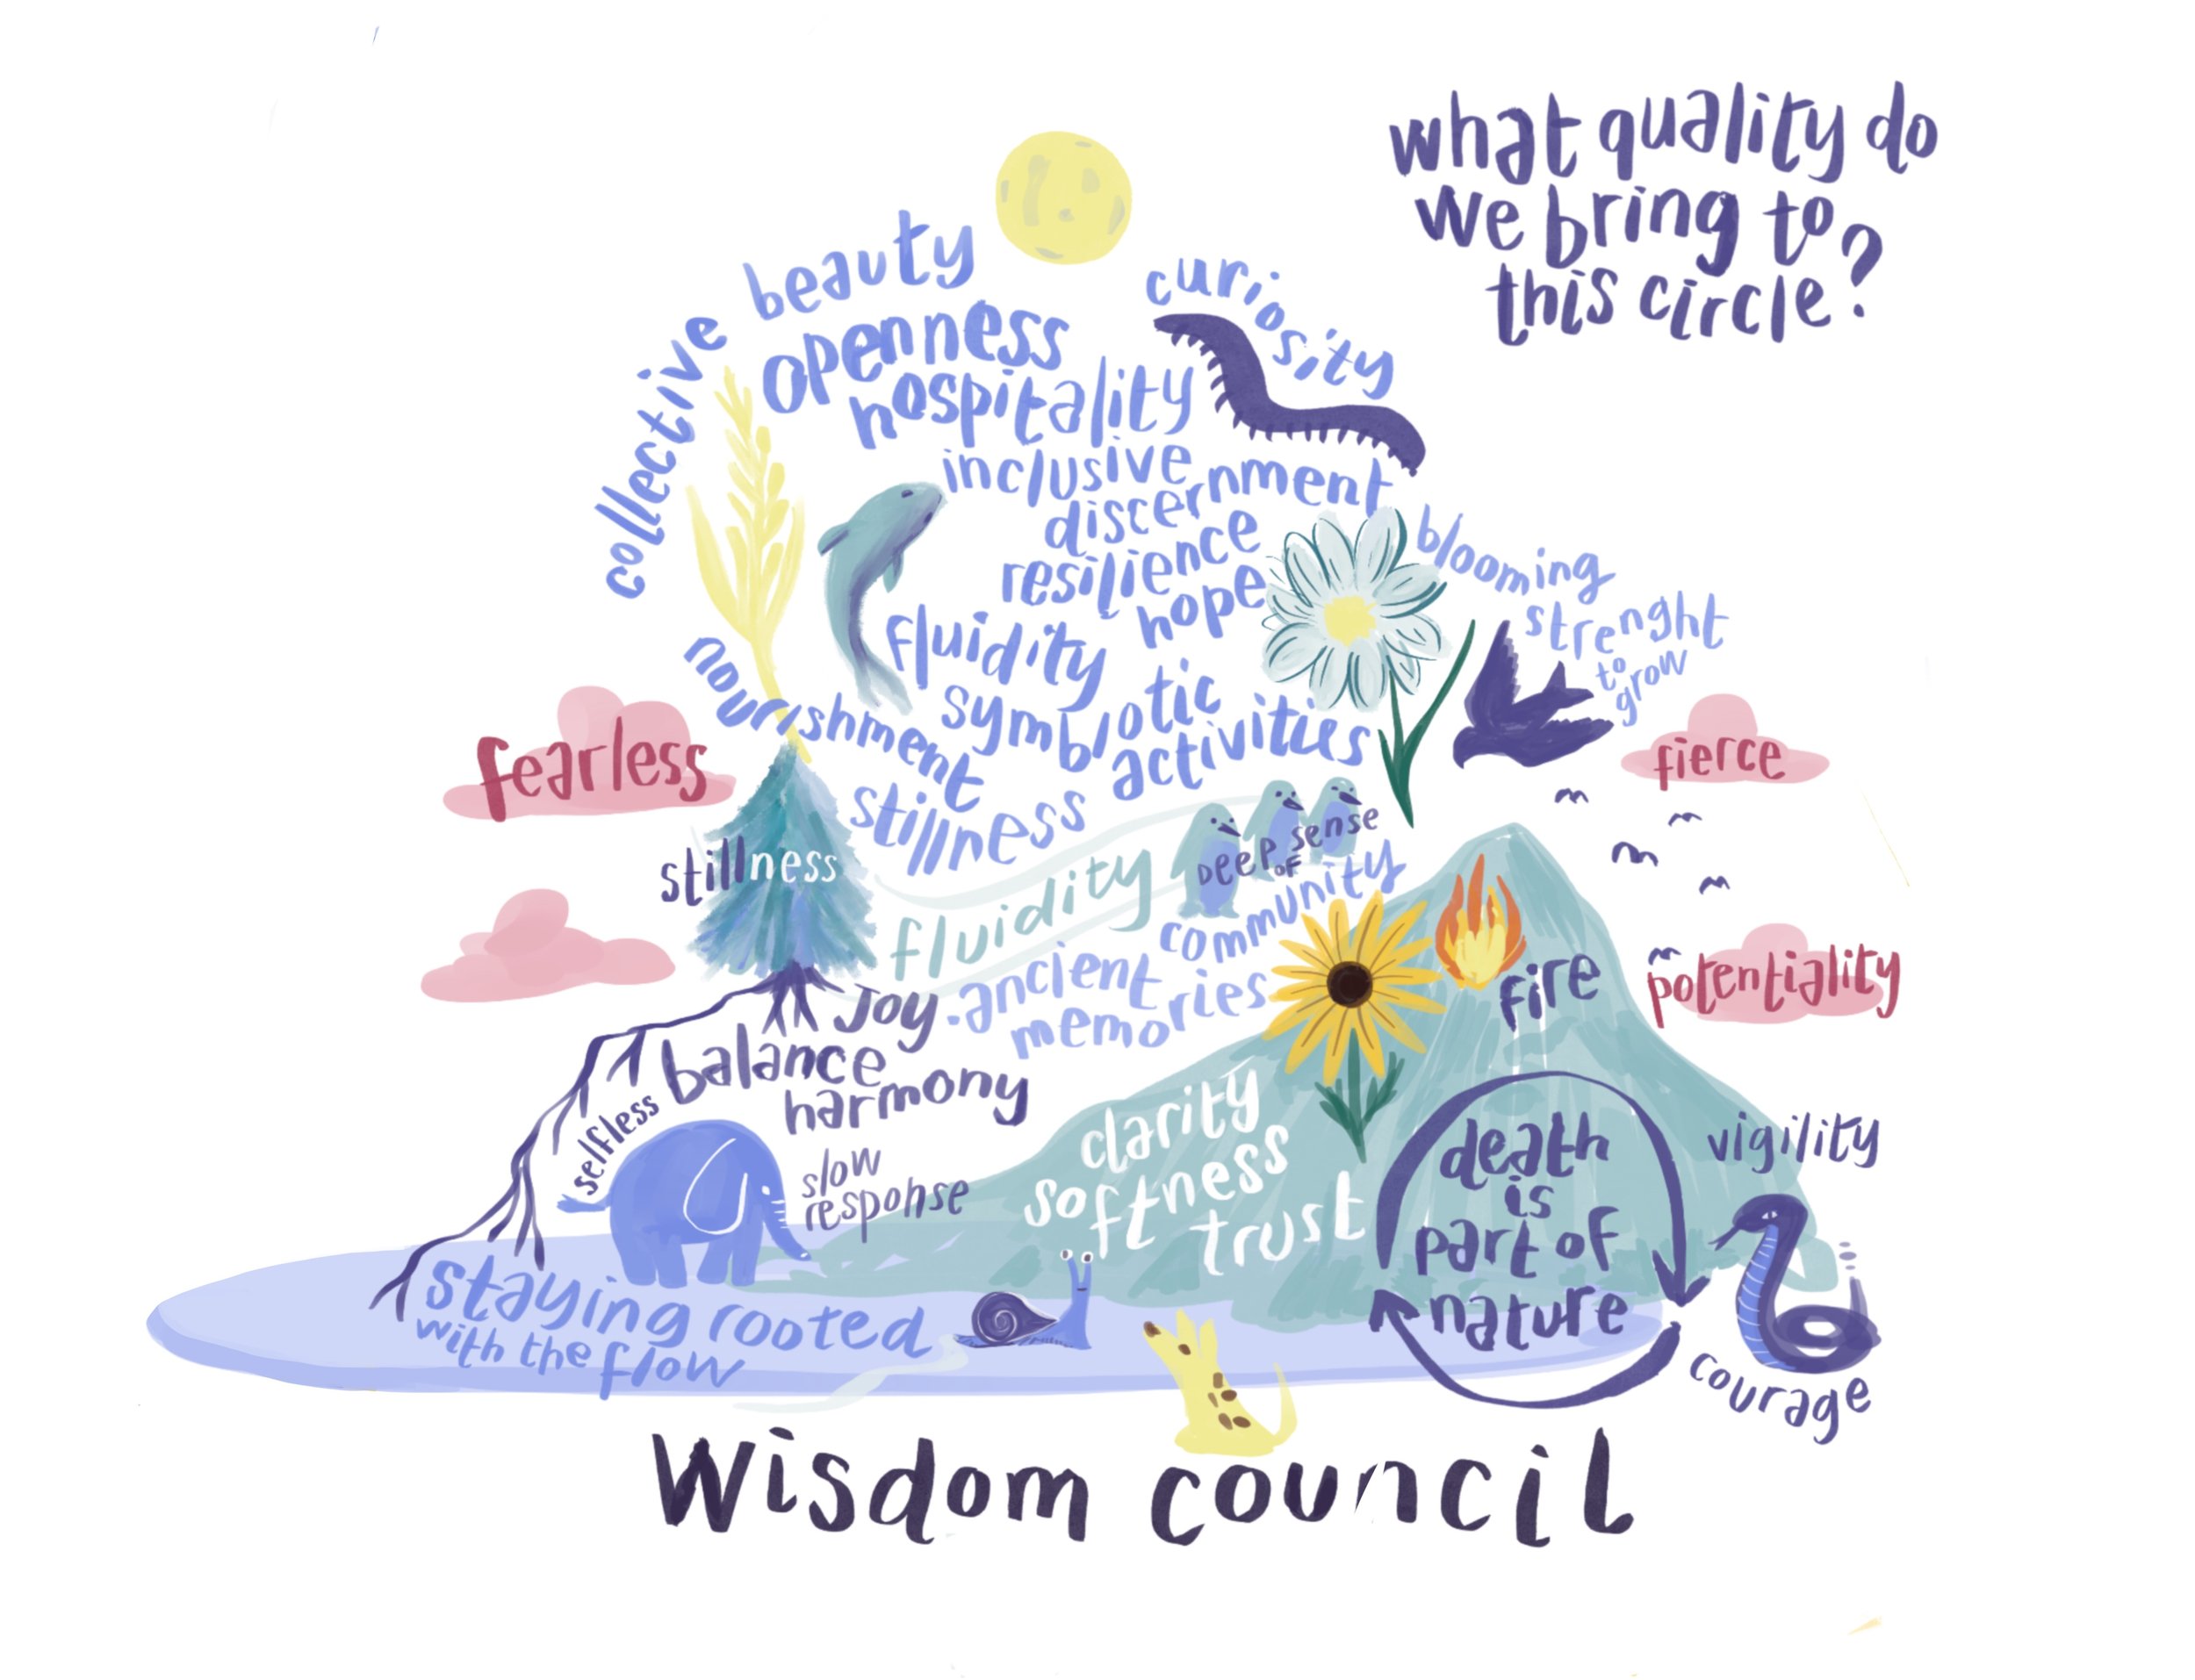 what quality do
we bring to
this circle?
beauty
curiosity
collective
openness
hospitality
inclusive
discernment
resilience
hope
blooming
strenght
to
grow
fluidity
symbiotic
activities
nourishment
stillness
fearless
fierce
stillness
fluidity
DEEP sense
OF
community
ancient
memories
Joy
balance
harmony
fire
potentiality
selfless
slow
response
clarity
softness
trust
death
is
part of
nature
vigility
courage
staying rooted
with the flow
Wisdom council